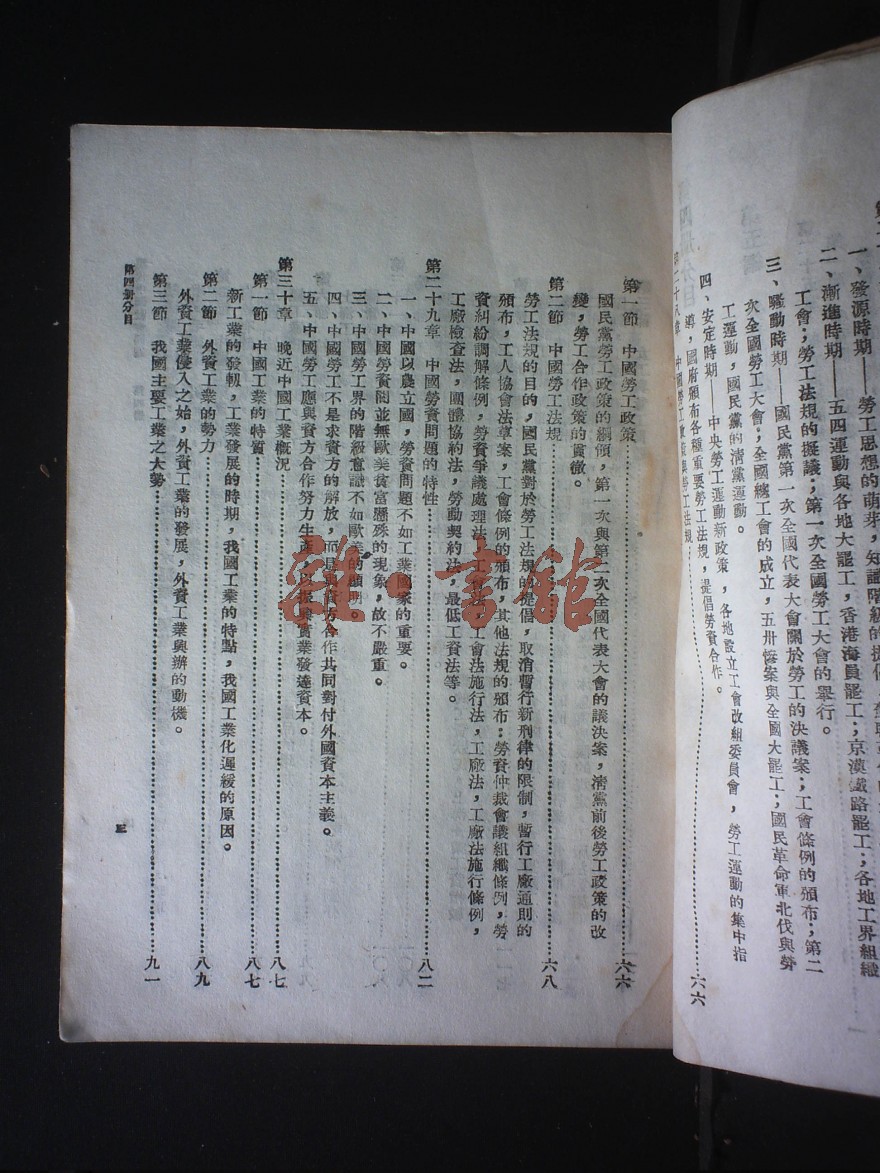 一、發源時期——勞工思想的萌芽，知識階級的提倡，
二、漸進時期——五四運動與各地大罷工，香港海員罷工；京漢鐵路罷工；各地工界組織
工會；勞工法規的擬議；第一次全國勞工大會的舉行。
三、騷動時期——國民黨第一次全國代表大會關於勞工的決議案；工會條例的頒布；第二
次全國勞工大會；全國總工會的成立，五卅慘案與全國大罷工；國民革命軍北伐與勞
工運動，國民黨的清黨運動。
四、安定時期——中央勞工運動新政策，各地設立工會改組委員會，勞工運動的集中指
導，國府頒布各種重要勞工法規，提倡勞資合作。
第二十八章　中國勞工政策與勞工法規……六六
第一節　中國勞工政策……六六
國民黨勞工政策的綱領，第一次與第二次全國代表大會的議決案，清黨前後勞工政策的改
變，勞工合作政策的貫徹。
第二節　中國勞工法規……六八
勞工法規的目的，國民黨對於勞工法規的提倡，取消暫行新刑律的限制，暫行工廠通則的
頒布，工人協會法草案，工會條例的頒布，其他法規的頒布：勞資仲裁會議組織條例，勞
資糾紛調解條例，勞資爭議處理法，工會法，工會法施行法，工廠法，工廠法施行條例，
工廠檢查法，團體協約法，勞動契約法，最低工資法等。
第二十九章　中國勞資問題的特性……八二
一、中國以農立國，勞資問題不如工業國家的重要。
二、中國勞資間並無歐美貧富懸殊的現象，故不嚴重。
三、中國勞工界的階級意識不如歐美的顯明。
四、中國勞工不是求資方的解放，而是與資方合作共同對付外國資本主義。
五、中國勞工應與資方合作努力生產，以振興實業發達資本。
第三十章　晚近中國工業概況……八七
第一節　中國工業的特質……八七
新工業的發軔，工業發展的時期，我國工業的特點，我國工業化遲緩的原因。
第二節　外資工業的勢力……八九
外資工業侵入之始，外資工業的發展，外資工業興辦的動機。
第三節　我國主要工業之大勢……九一
第四册分目
三
雜·書館